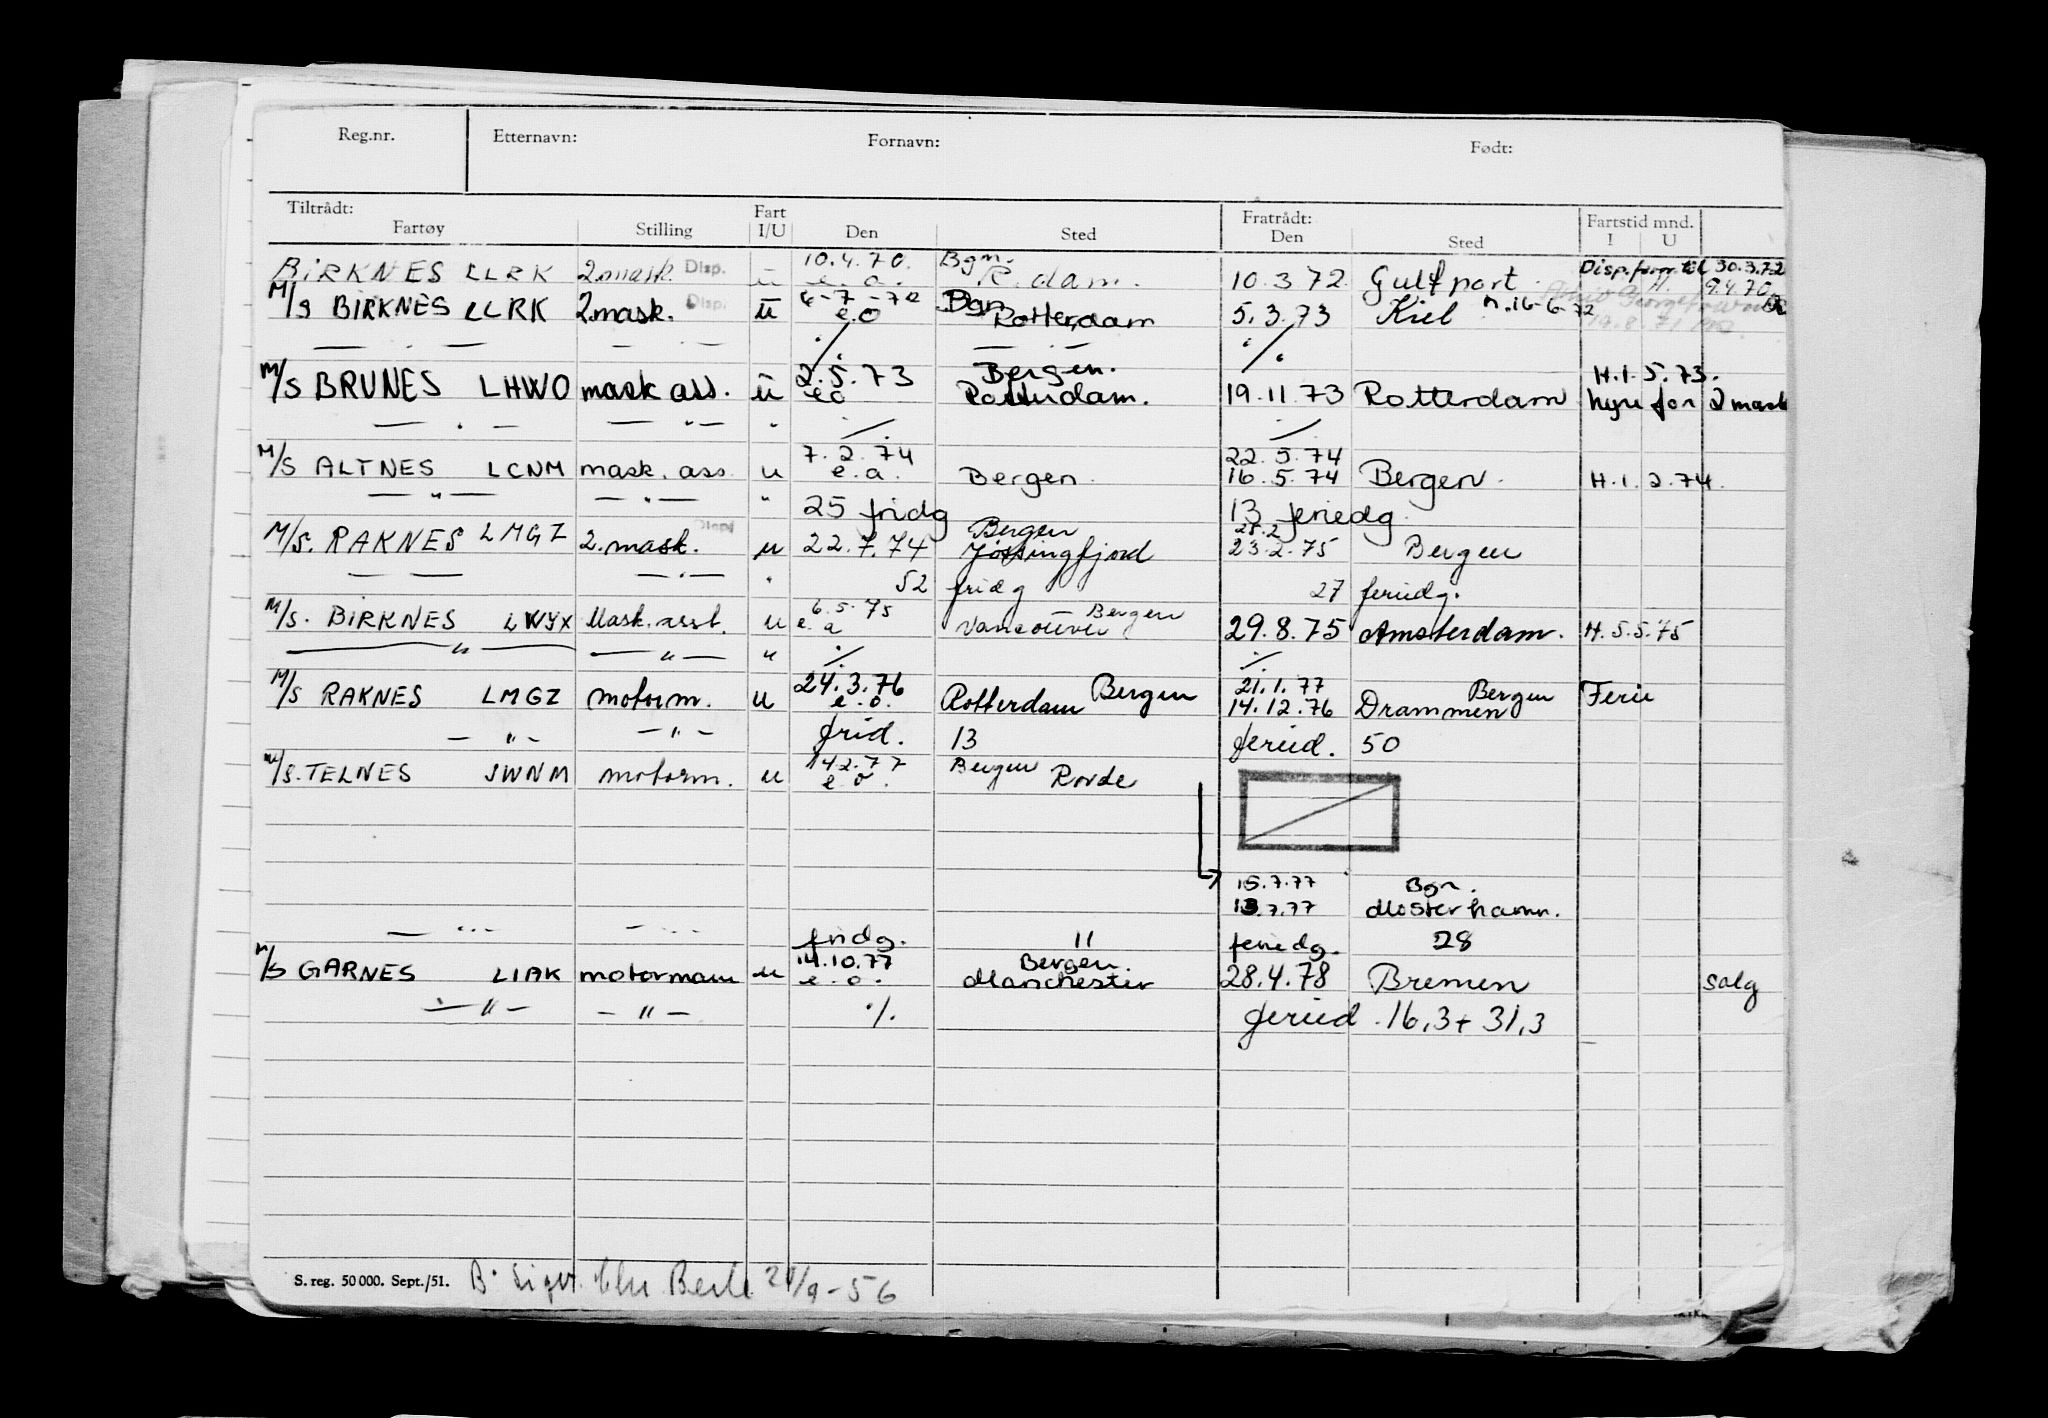 Reg.nr. Etternavn: Fornavn: Født:
Tiltrådt: Fart Fratrådt: Fartstid mnd.
Fartøy Stilling I/U Den Sted Den Sted I U
10.4.70. Bgn. Disp. forn. til 30.3.72
BIRKNES LLRK 2.mask. Disp. u e.o. R.dam. 10.3.72. Gulfport. H. 9.4.70
6-7-72 Bgn
M/S BIRKNES LLRK 2.mask. Disp. u e.o Rotterdam 5.3.73 Kiel n.16-6-72
— . — — . — ./. — . — ./.
2.5.73 Bergen. H.1.5.73.
M/S BRUNES LHWO mask ass. u eo Rotterdam. 19.11.73 Rotterdam hyre for 2 mask
— " — — " — " ./. ./.
7.2.74 22.5.74
M/S ALTNES LCNM mask. ass. u e.a. Bergen. 16.5.74 Bergen. H.1.2.74.
— " — — " — " 25 fridg 13 feriedg.
Bergen 25.2
M/S. RAKNES LMGZ 2.mask. Disp u 22.7.74 Jøssingfjord 23.2.75 Bergen
— — — . — " 52 fridg 27 feriedg.
6.5.75 Bergen
M/S. BIRKNES LWYX Mask.asst. u e.a Vancouver 29.8.75 Amsterdam. H.5.5.75
— " — — " — " ./. ./.
24.3.76 Bergen 21.1.77 Bergen
M/S RAKNES LMGZ motorm. u e.o. Rotterdam 14.12.76 Drammen Ferie
— " — — " — frid. 13 feried. 50
14.2.77 Bergen
M/S. TELNES JWNM motorm. u e.o. Rovde
15.7.77 Bgn.
13.7.77 Mosterhamn.
— " — — " — fridg. 11 feriedg. 28
14.10.77 Bergen.
M/S GARNES LIAK motormann u e.o. Manchester 28.4.78 Bremen salg
— " — — " — ./. feried. 16,3 + 31,3
S. reg. 50 000. Sept./51. B.